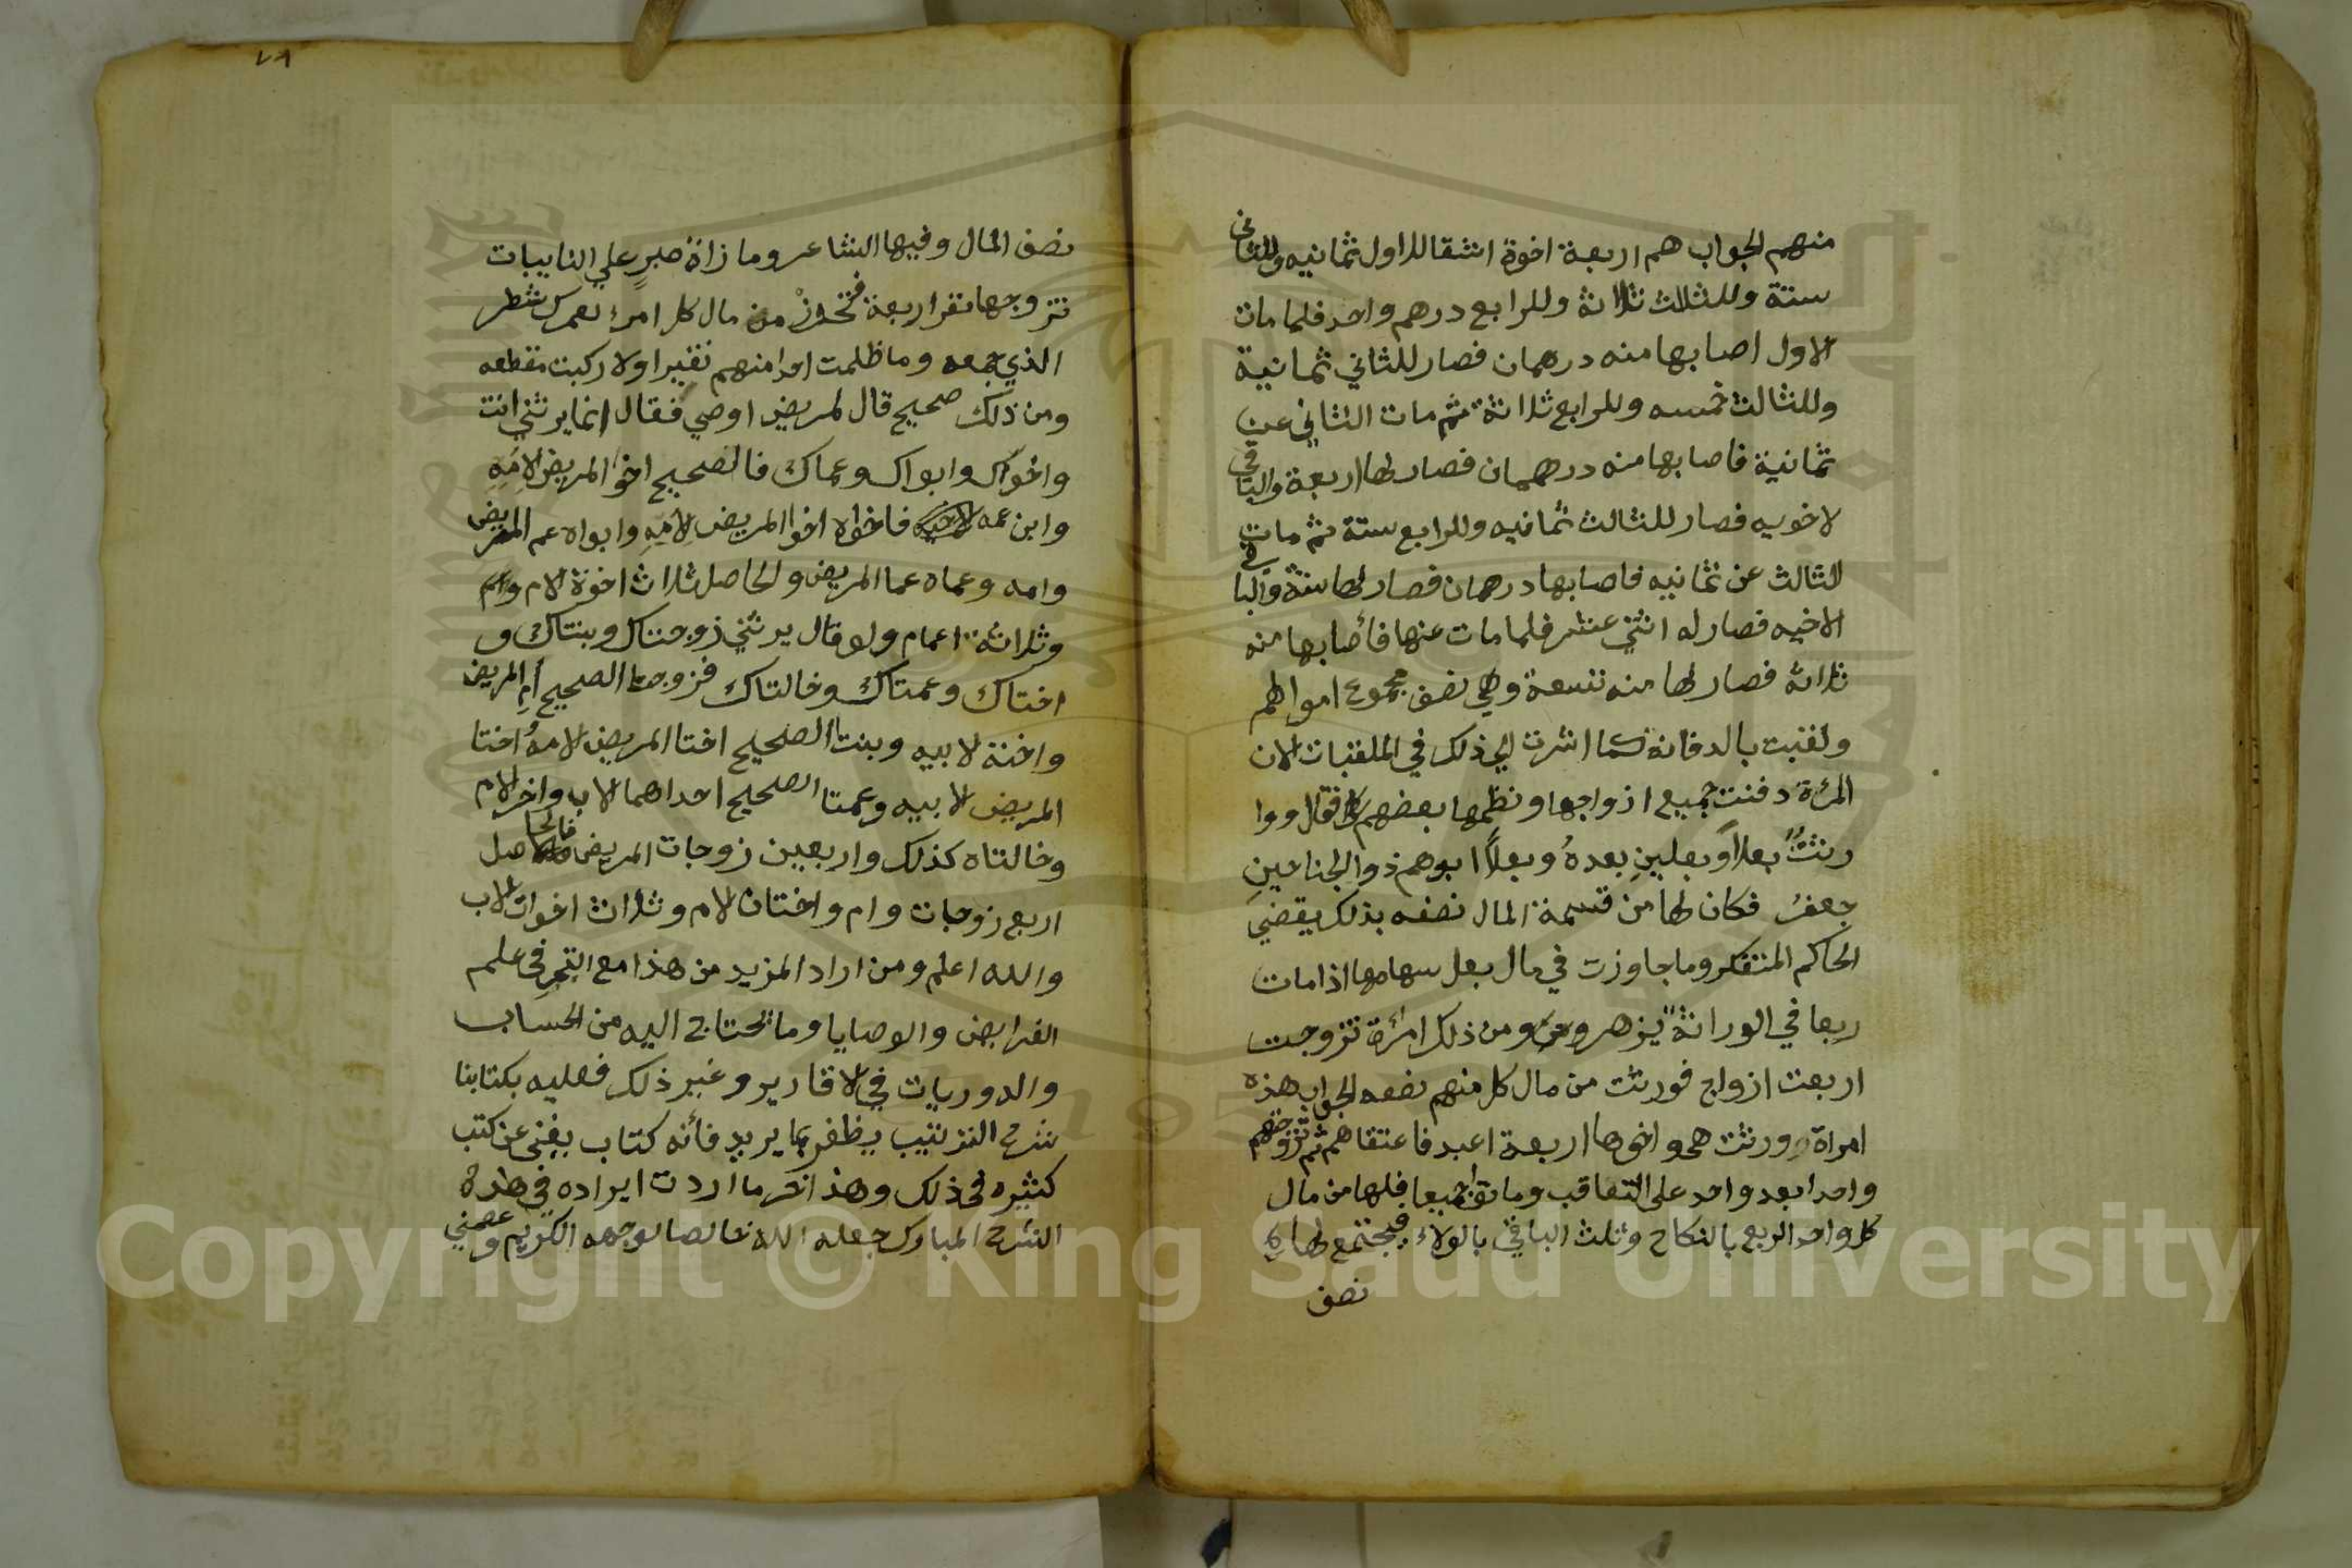 منهم الجواب هم اربعة اخوة اشقا للاول ثمانيه وللثاني
ستة وللثلاث ثلاثة وللرابع درهم واحد فلما مات
الاول اصابها منه درهمان فصار للثاني ثمانية
وللثالث خمسه وللرابع ثلاثة ثم مات الثاني عن
ثمانية فاصابها منه درهمان فصار لها اربعة والباقي
لاخويه فصار للثالث ثمانيه وللرابع ستة ثم مات
الثالث عن ثمانيه فاصابها درهمان فصار لها ستة والباقي
لاخيه فصار له اثني عشر فلما مات عنها فأصابها منه
ثلاثة فصار لها منه تسعة وهي نصف مجموع اموالهم
ولقبت بالدفانة كما اشرت الي ذلك في الملقبات لان
المرءة دفنت جميع ازواجها ونظمها بعضهم فقال ووا
رثةٌ بعلاً وبعلينِ بعدهُ وبعلاً ابوهم ذو الجناحينِ
جعفرُ فكان لها من قسمة المال نصفه بذلك يقضي
الحاكم المتفكر وما جاوزت في مال بعل سهامها اذا مات
ربعا في الوراثة يزهر ومن ذلك امرأة تزوجت
اربعت ازواج فورثت من مال كل منهم نصفه الجواب هذه
امراة ورثت هي واخوها اربعة اعبد فاعتقاهم ثم تزوجتهم
واحدا بعد واحد على التعاقب وماتوا جميعا فلها من مال
كل واحد الربع بالنكاح وثلث الباقي بالولاء فيجتمع لها
نصف
٧٨
نصف المال وفيها الشاعر وما زاة صبرٍ علي النايبات
تزوجها نفر اربعة فتحوز من مال كل امرء لعمرك شطر
الذي جمعه وما ظلمت احدا منهم نقيرا ولا ركبت مقطعه
ومن ذلك صحيح قال لمريض اوصي فقال انما يرثني انت
واخواك وابواك وعماك فالصحيح اخو المريض لامِهِ
وابن عمه فاخواه اخوا المريض لامِهِ وابواه عم المريض
وامه وعماه عما المريض والحاصل ثلاث اخوة لام وام
وثلاثة اعمام ولو قال يرثني زوجتاك وبنتاك و
اختاك وعمتاك وخالتاك فزوجتا الصحيح أم المريض
واخته لابيه وبنتا الصحيح اختا المريض لامه واختا
المريض لابيه وعمتا الصحيح احداهما لاب واخر لام
وخالتاه كذلك واربعين زوجات المريض فالحاصل
اربع زوجات وام واختان لام وثلاث اخوات لاب
والله اعلم ومن اراد المزيد من هذا مع التبحرِ في علم
الفرايض والوصايا وما يحتاج اليه من الحساب
والدوريات في الاقارير وغير ذلك فعليه بكتابنا
شرح الترتيب يظفر بما يريد فأنه كتاب يغني عن كتب
كثيره في ذلك وهذا اخر ما اردت ايراده في هذه
الشرح المبارك جعله الله خالصا لوجهه الكريم وعصمني
Copyright © King Saud University